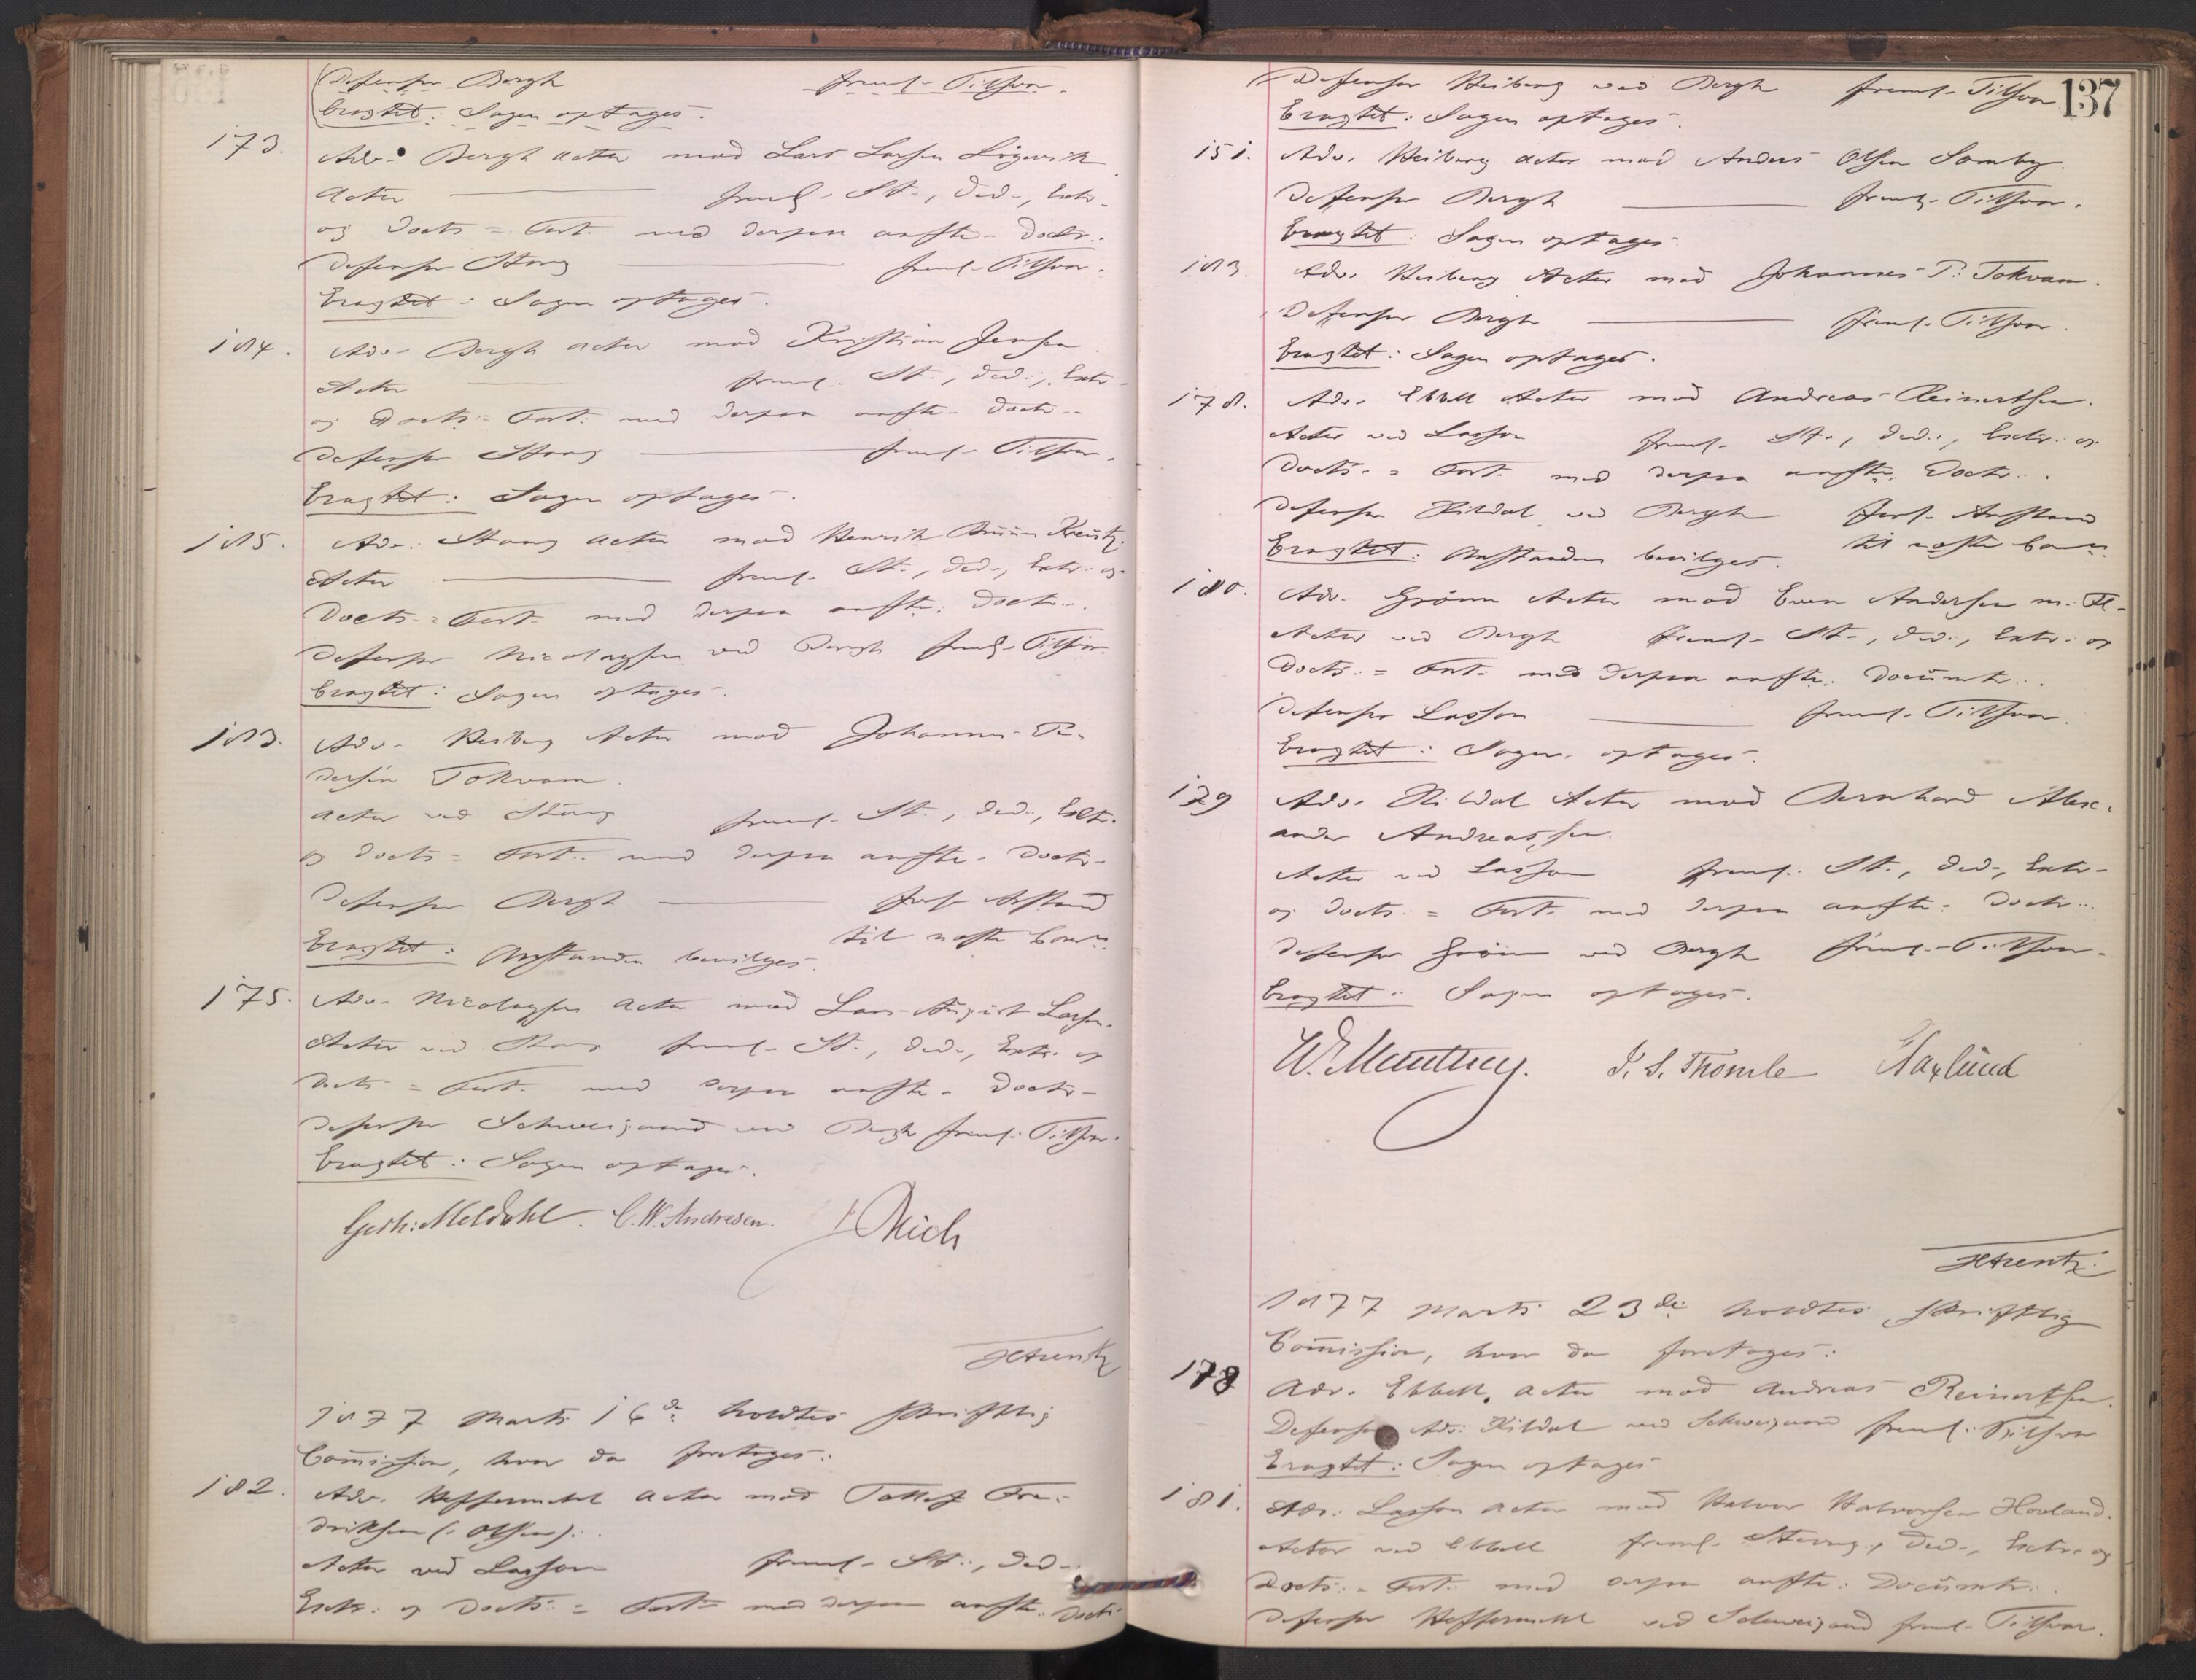 Defensor Bergh freml. Tilsvar.
Eragtet: Sagen optages.
173. Adv. Bergh Actor mod Lars Larsen
Actor freml. St., Ded., Extr.
og Docts = Fort. med derpaa anfte. Doctr.
Defensor Stang freml. Tilsvar.
Eragtet: Sagen optages.
184. Adv. Bergh Actor mod Kristian Jensen
Actor freml. St., Ded., Extr.
og Docts = Fort. med derpaa anfte. Doctr.
Defensor Stang freml. Tilsvar.
Eragtet: Sagen optages.
185. Adv. Stang Actor mod Henrik Bruun Kreutz.
Actor freml. St., Ded., Extr. og
Docts = Fort. med derpaa anfte. Doctr.
Defensor Nicolaysen ved Bergh freml. Tilsvar.
Eragtet: Sagen optages.
183. Adv. Heiberg Actor mod Johannes Pe-
dersen Tokvam.
Actor ved Stang freml. St., Ded., Extr.
og Docts = Fort. med derpaa anfte. Doctr.
Defensor Bergh forl. Anstand
til næste Comn.
Eragtet: Anstanden bevilges.
175. Adv. Nicolaysen Actor mod Lars August Larsen.
Actor ved Stang freml. St., Ded., Extr. og
Docts = Fort. med derpaa anfte. Doctr.
Defensor Schweigaard ved Bergh freml. Tilsvar.
Eragtet: Sagen optages.
Gerh: Meldahl. C. W. Andresen.
HArentz
1877 Marts 16de holdtes skriftlig
Commission, hvor da foretoges:
182. Adv. Heffermehl Actor mod Tollef Fre-
driksen (: Olsen):.
Actor ved Lasson freml. St., Ded.
Extr. og Docts = Fort. med derpaa anfte. Doctr.
137
Defensor Heiberg ved Bergh freml. Tilsvar
Eragtet: Sagen optages.
151. Adv. Heiberg Actor mod Anders Olsen Somby.
Defensor Bergh freml. Tilsvar.
Eragtet: Sagen optages.
183. Adv. Heiberg Actor mod Johannes P. Tokvam.
Defensor Bergh freml. Tilsvar.
Eragtet: Sagen optages.
178. Adv. Ebbell Actor mod Andreas Reinertsen.
Actor ved Lasson freml. St., Ded., Extr. og
Docts. = Fort. med derpaa anfte. Doctr.
Defensor Kildal ved Bergh forl. Anstand
til næste Comn.
Eragtet: Anstanden bevilges.
180. Adv. Grönn Actor mod Even Andersen m. Fl.
Actor ved Bergh freml. St., Ded., Extr. og
Docts. = Fort. med derpaa anfte. Documtr.
Defensor Lasson freml. Tilsvar.
Eragtet: Sagen optages.
179 Adv. Kildal Actor mod Bernhard Alex-
ander Andreassen.
Actor ved Lasson freml. St., Ded., Extr.
og Docts = Fort. med derpaa anfte. Doctr.
Defensor Grönn ved Bergh freml. Tilsvar.
Eragtet: Sagen optages.
J. S. Thomle Haxlund
HArentz
1877 Marts 23de holdtes skriftlig
Commission, hvor da foretoges:
178 Adv. Ebbell Actor mod Andreas Reinertsen.
Defensor Adv. Kildal ved Schweigaard freml. Tilsvar
Eragtet: Sagen optages
181. Adv. Lasson Actor mod Halvor Halvorsen Hovland.
Actor ved Ebbell freml. Stevng., Ded., Extr. og
Docts. = Fort. med derpaa anfte. Documtr.
Defensor Heffermehl ved Schweigaard freml. Tilsvar.